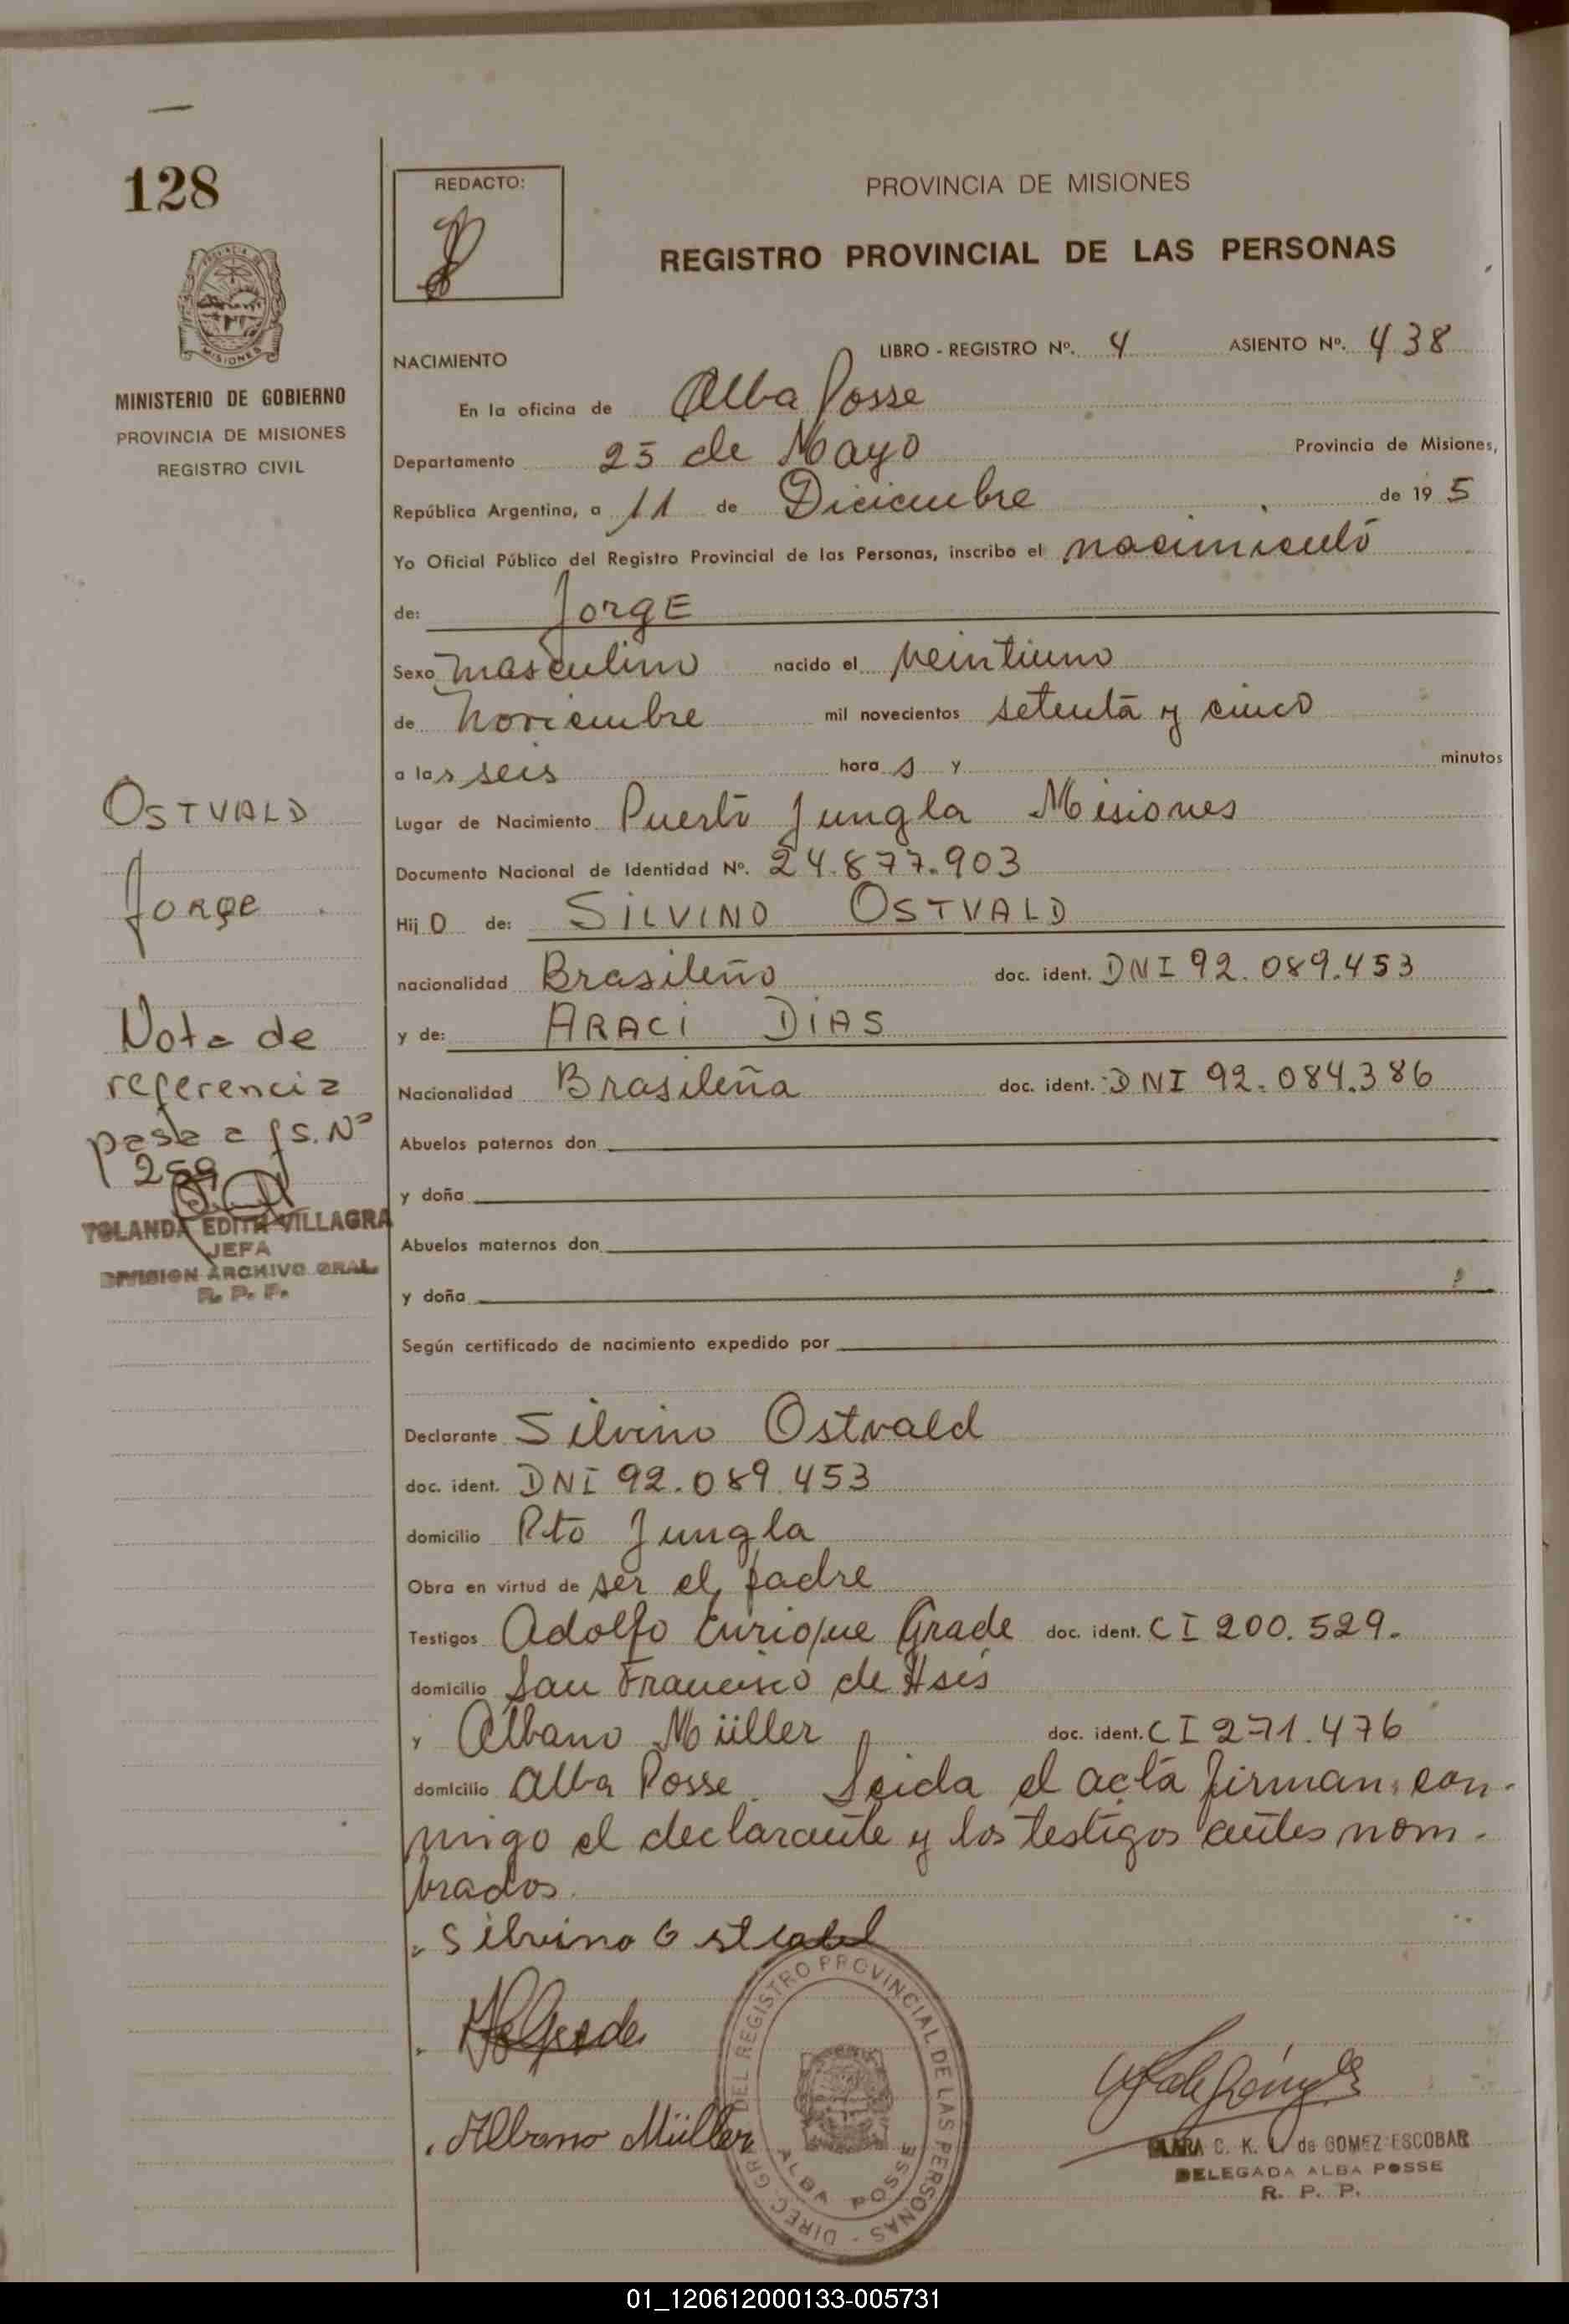 128
REDACTO:
PROVINCIA DE MISIONES
REGISTRO PROVINCIAL DE LAS PERSONAS
MISIONES
MINISTERIO DE GOBIERNO
PROVINCIA DE MISIONES
REGISTRO CIVIL
NACIMIENTO
LIBRO - REGISTRO Nº. 4 ASIENTO Nº. 438
En la oficina de Alba Posse
Departamento 25 de Mayo Provincia de Misiones,
República Argentina, a 11 de Diciembre de 19 5
Yo Oficial Público del Registro Provincial de las Personas, inscribo el nacimiento
de: JorgE
Sexo masculino nacido el veintiuno
de noviembre mil novecientos setenta y cinco
a las seis hora s y minutos
Lugar de Nacimiento Puerto Jungla Misiones
Documento Nacional de Identidad Nº. 24.877.903
Hij O de: SILVINO OSTVALD
nacionalidad Brasileño doc. ident. DNI 92.089.453
y de: ARACI DIAS
Nacionalidad Brasileña doc. ident. DNI 92.084.386
Abuelos paternos don
y doña
Abuelos maternos don
y doña
Según certificado de nacimiento expedido por
Declarante Silvino Ostvald
doc. ident. DNI 92.089.453
domicilio Pto Jungla
Obra en virtud de ser el padre
Testigos Adolfo Enrique Grade doc. ident. CI 200.529.
domicilio San Francisco de Asis
y Albano Müller doc. ident. CI 271.476
domicilio Alba Posse. Leida el acta firman con-
migo el declarante y los testigos antes nom-
brados.
Silvino Ostvald
Albano Müller
OSTVALD
Jorge
Nota de
referencia
pasa a fs. Nº
259
YOLANDA EDITH VILLAGRA
JEFA
DIVISION ARCHIVO GRAL.
R. P. P.
DIREC. GRAL. DEL REGISTRO PROVINCIAL DE LAS PERSONAS -
ALBA POSSE
CLARA C. K. L. de GOMEZ ESCOBAR
DELEGADA ALBA POSSE
R. P. P.
01_120612000133-005731